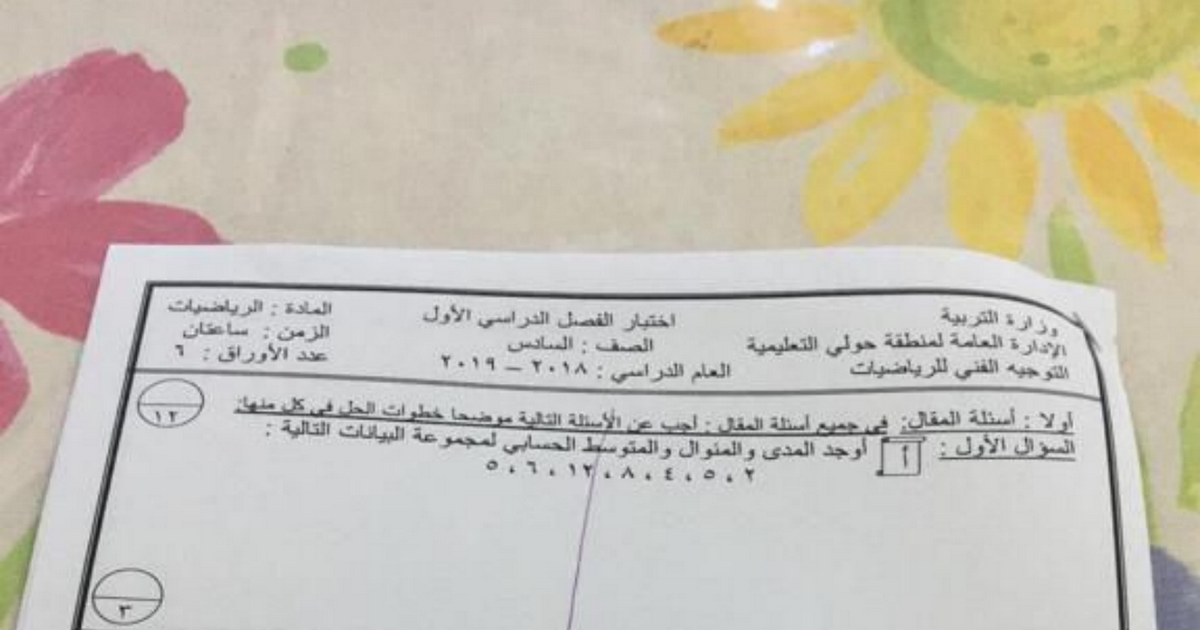 وزارة التربية
الإدارة العامة لمنطقة حولي التعليمية
التوجيه الفني للرياضيات
اختبار الفصل الدراسي الأول
الصف : السادس
العام الدراسي : ٢٠١٨ – ٢٠١٩
المادة : الرياضيات
الزمن : ساعتان
عدد الأوراق : ٦
١٢
أولا : أسئلة المقال: في جميع أسئلة المقال : أجب عن الأسئلة التالية موضحا خطوات الحل في كل منها:
السؤال الأول : أ أوجد المدى والمنوال والمتوسط الحسابي لمجموعة البيانات التالية :
٢ ، ٥ ، ٤ ، ٨ ، ١٢ ، ٦ ، ٥
٣